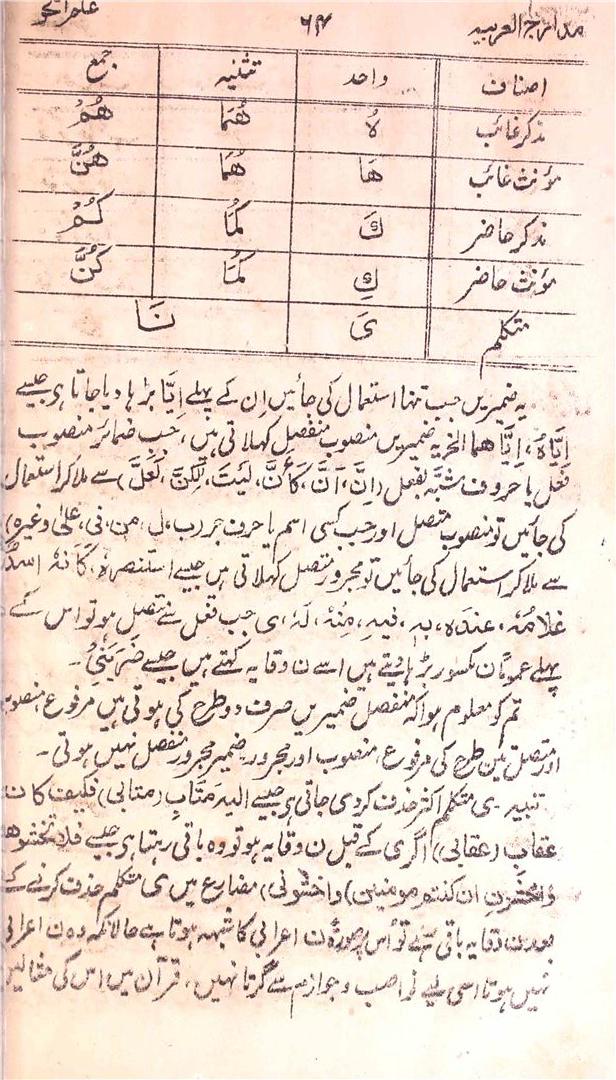 مدارج العربیہ ۶۴ علم النحو
اصناف واحد تثنیہ جمع
مذکر غائب ہُ هُمَا هُمْ
مؤنث غائب هَا هُمَا هُنَّ
مذکر حاضر كَ كُمَا كُمْ
مؤنث حاضر كِ كُمَا كُنَّ
متکلم یَ نَا
یہ ضمیریں جب تنہا استعمال کی جائیں اِن کے پہلے اِیَّا بڑہا دیا جاتا ہی جیسے
اِیَّاہُ، اِیَّا هما الخ یہ ضمیریں منصوب منفصل کہلاتی ہیں، جب ضمائر منصوب
فعل یا حروف شبّہ بفعل (اِنَّ، اَنَّ، کَأَنَّ، لَیتَ، لٰکِنَّ، لَعَلَّ) سے ملا کر استعمال
کی جائیں تو منصوب متصل اور جب کسی اسم یا حرف جر رب، ل، من، فی، علیٰ وغیرہ)
سے ملا کر استعمال کی جائیں تو مجرور متصل کہلاتی ہیں جیسے استنصرہ، کَأنّہٗ اسدٌ
غلامُہٗ، عندَہ، بِہٖ، فیہِ، مِنْہُ، لَہٗ، ی جب فعل سے متصل ہو تو اس کے
پہلے عموماً ن مکسور بڑہا دیتے ہیں اسے ن وقایہ کہتے ہیں جیسے ضَرَبَنِیْ۔
تم کو معلوم ہوا کہ منفصل ضمیریں صرف دو طرح کی ہوتی ہیں مرفوع، منصوب
اور متصل تین طرح کی مرفوع، منصوب اور مجرور۔ ضمیر مجرور منفصل نہیں ہوتی۔
تنبیہ۔ ی متکلم اکثر حذف کردی جاتی ہی جیسے الیہ مَتَابِ (متابی) فکیف کان
عقابِ (عقابی) اگر ی کے قبل ن وقایہ ہو تو وہ باقی رہتا ہی جیسے فلا تخشوھم
واخشونِ ان کنتم مومنین (واخشونی) مضارع میں ی متکلم حذف کرنے کے
بعد ن وقایہ باقی رہے تو اُس پر صورۃً ن اعرابی کا شبہہ ہوتا ہے حالانکہ وہ ن اعرابی
نہیں ہوتا اسی لیے نواصب و جوازم سے گرتا نہیں، قرآن میں اس کی مثالیں